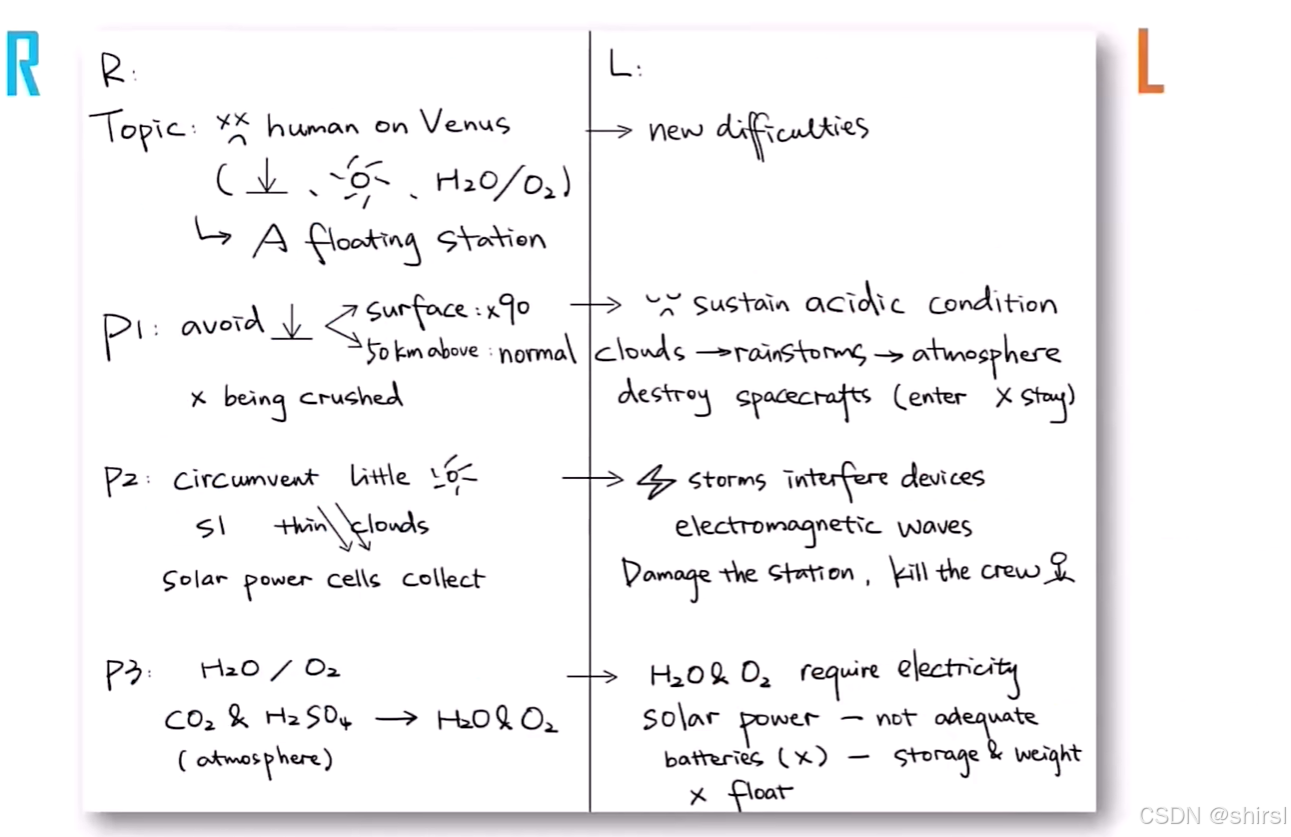 R
L
R:
Topic: xx human on Venus
( ↓ 、 、 H₂O/O₂)
↳ A floating station
P1: avoid ↓ surface: x90
50 km above: normal
x being crushed
P2: circumvent little
Sl thin clouds
Solar power cells collect
P3: H₂O / O₂
CO₂ & H₂SO₄ → H₂O & O₂
(atmosphere)
L:
→ new difficulties
→ sustain acidic condition
clouds → rainstorms → atmosphere
destroy spacecrafts (enter x stay)
→ storms interfere devices
electromagnetic waves
Damage the station, kill the crew
→ H₂O & O₂ require electricity
solar power – not adequate
batteries (x) – storage & weight
x float
CSDN @shirsl